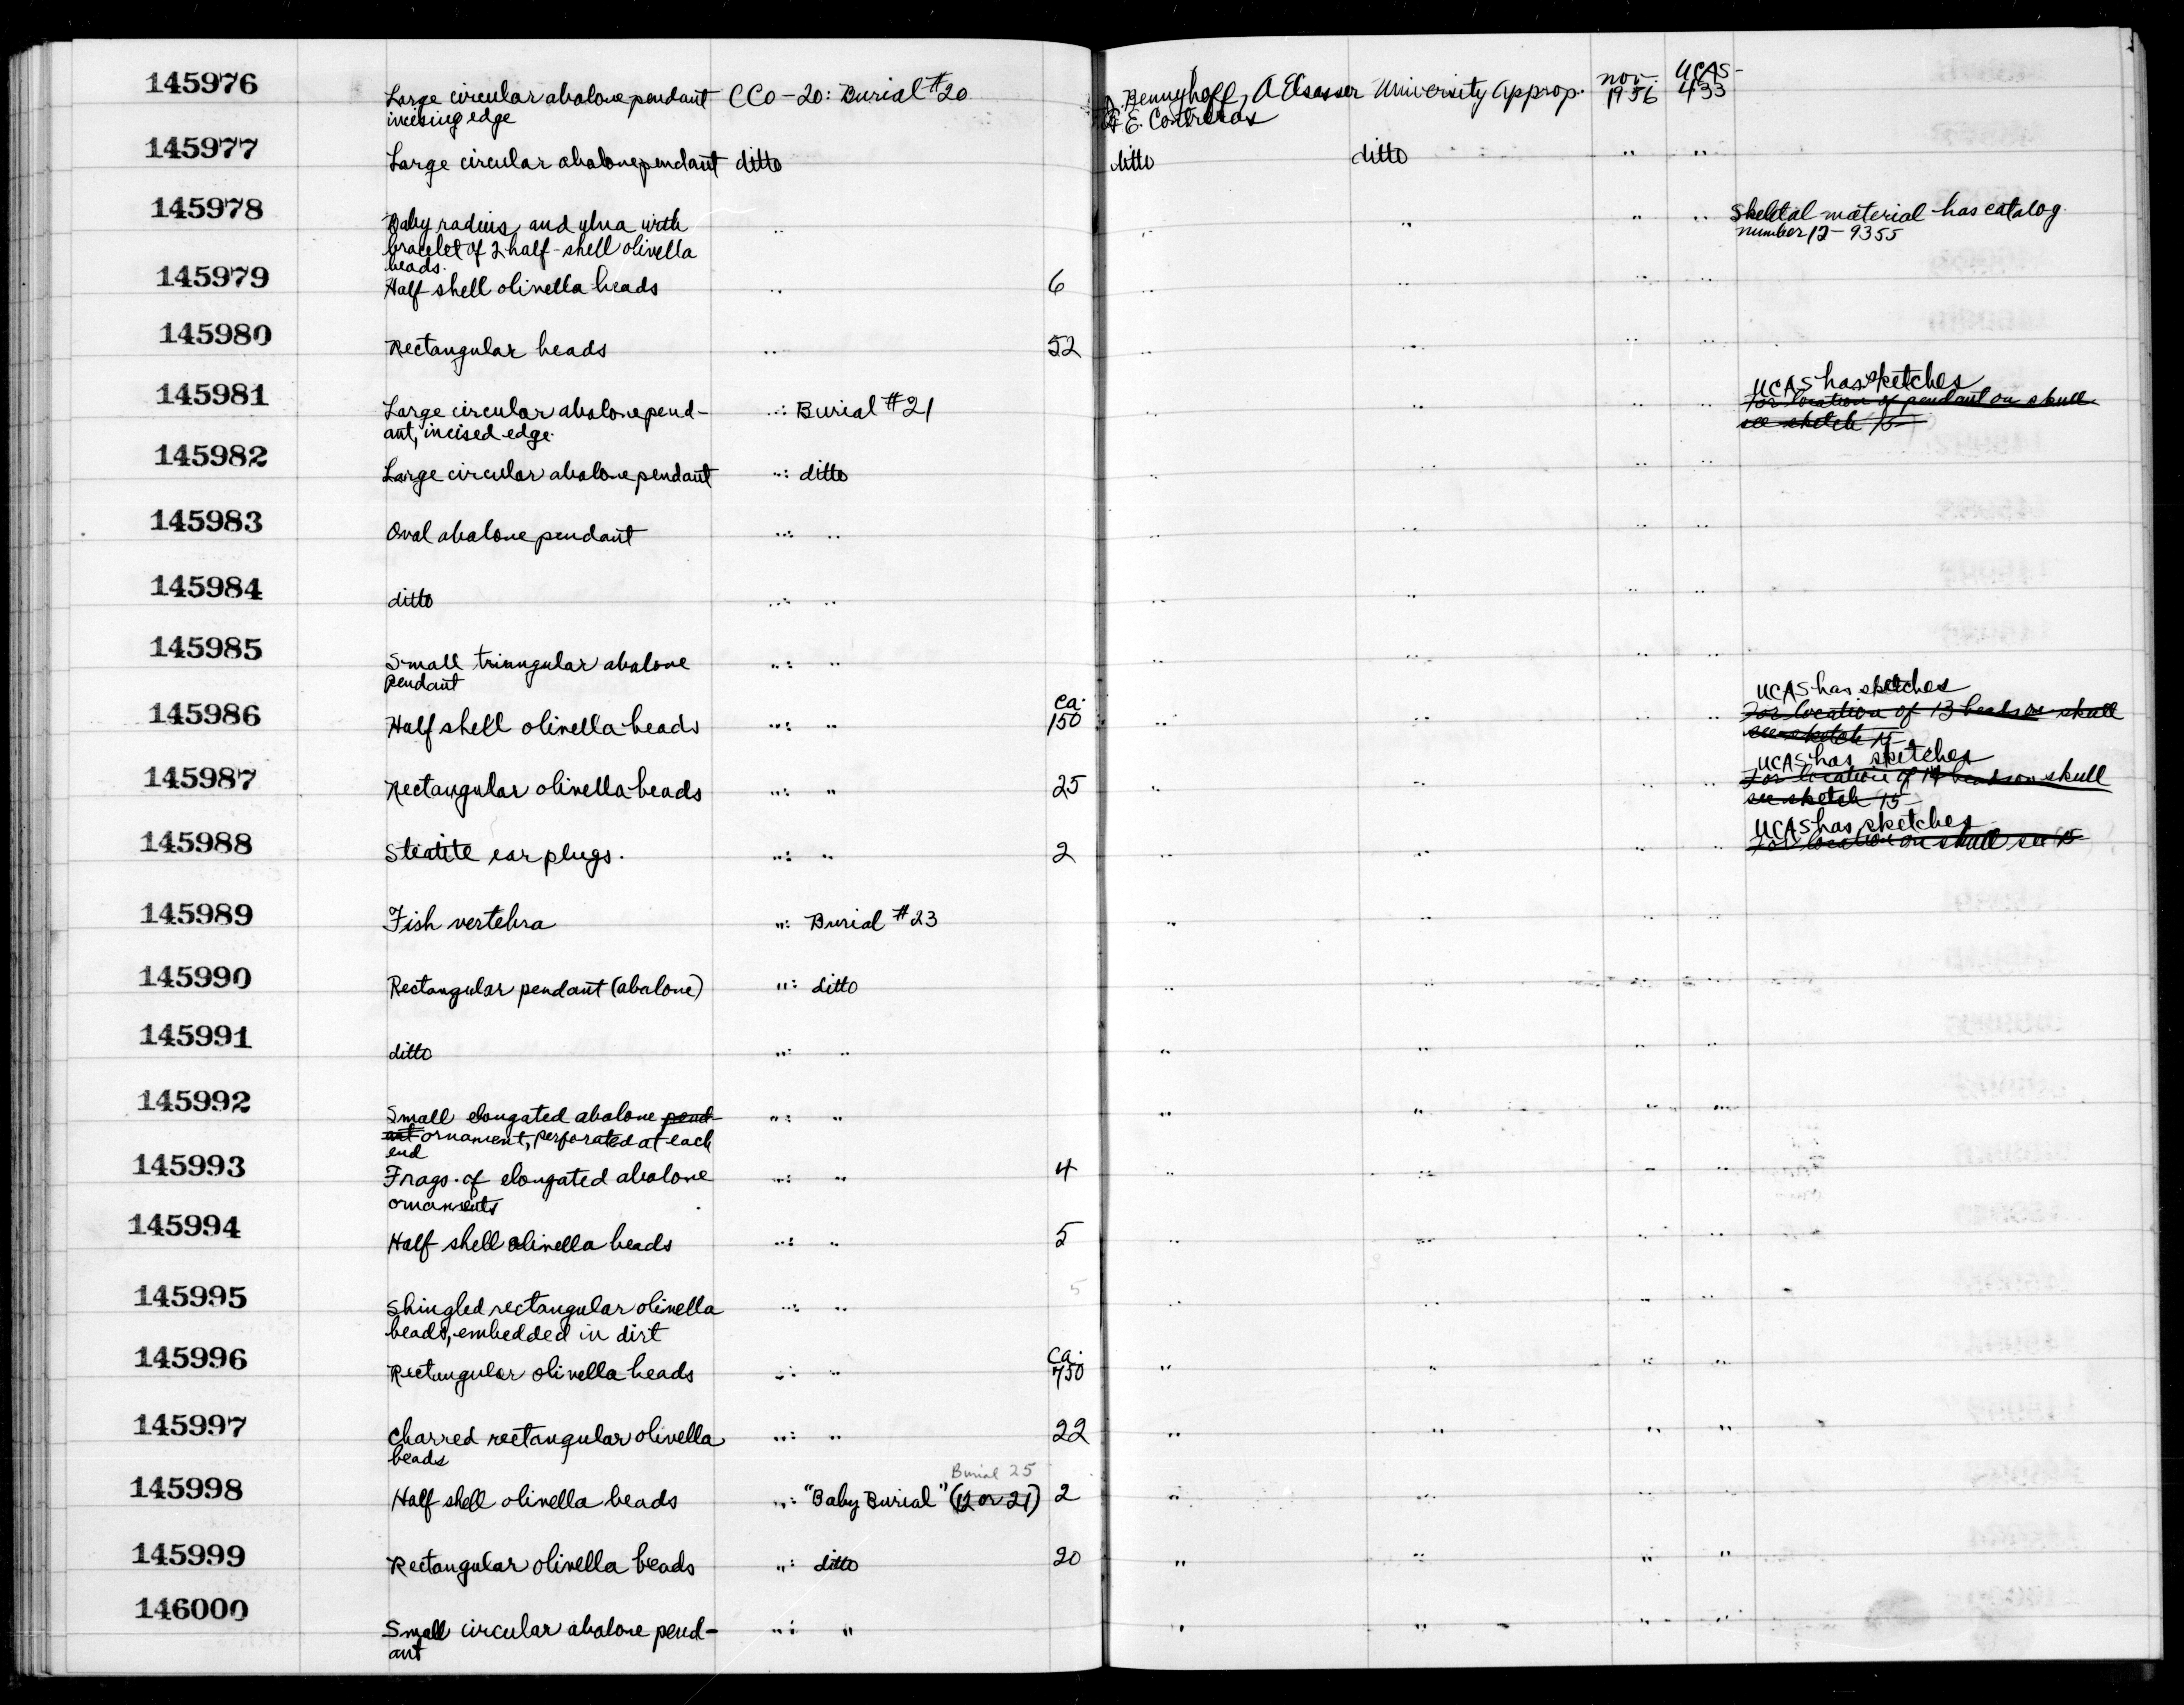 145976 Large circular abalone pendant CCO-20: Burial #20 Bennyhoff, A Elsasser University Approp. Nov. UCAS-
incising edge & E. Contreras 1956 433
145977 Large circular abalone pendant ditto ditto ditto " "
145978 Baby radius and ulna with " " " " " Skeletal material has catalog
bracelet of 2 half-shell olivella number 12-9355
beads.
145979 Half shell olivella beads " 6 " " " "
145980 Rectangular beads " 52 " " " "
145981 Large circular abalone pend- ": Burial #21 " " " " UCAS has sketches
ant, incised edge. For location of pendant on skull
see sketch 15-
145982 Large circular abalone pendant ": ditto " " " "
145983 Oval abalone pendant ": " " " " "
145984 ditto ": " " " " "
145985 Small triangular abalone ": " " " " "
pendant
145986 Half shell olivella beads ": " ca. 150 " " " " UCAS has sketches
For location of 13 beads on skull
see sketch 15-
145987 Rectangular olivella beads ": " 25 " " " " UCAS has sketches
For location of 14 beads on skull
see sketch 15-
145988 Steatite ear plugs. ": " 2 " " " " UCAS has sketches
For location on skull see 15-
145989 Fish vertebra ": Burial #23 " " " "
145990 Rectangular pendant (abalone) ": ditto " " " "
145991 ditto ": " " " " "
145992 Small elongated abalone pend- ": " " " " "
ant ornament, perforated at each
end
145993 Frags. of elongated abalone ": " 4 " " " "
ornaments
145994 Half shell olivella beads ": " 5 " " " "
145995 Shingled rectangular olivella ": " 5 " " " "
beads, embedded in dirt
145996 Rectangular olivella beads ": " ca. 750 " " " "
145997 Charred rectangular olivella ": " 22 " " " "
beads
Burial 25
145998 Half shell olivella beads ": "Baby Burial" (12 or 21) 2 " " " "
145999 Rectangular olivella beads ": ditto 20 " " " "
146000 Small circular abalone pend- ": " " " " "
ant